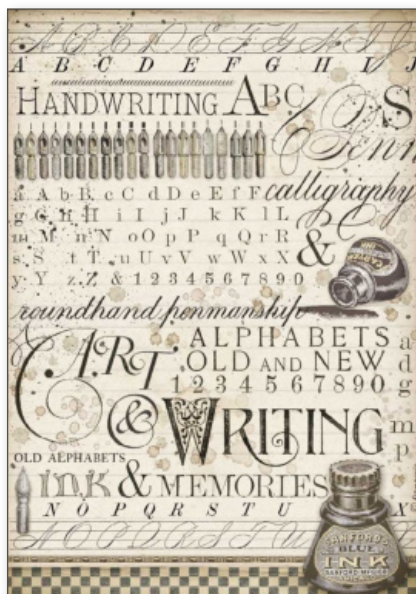 A B C D E F G H I J
A B C D E F G H I J
HANDWRITING ABC
S
Penm
a A b B c C d D e E f F
calligraphy
g G h H i I j J k K l L
m M n N o O p P q Q r R
&
s S t T u U v V w W x X
y Y z Z & 1 2 3 4 5 6 7 8 9 0
CARTER
INK
roundhand penmanship
ALPHABETS
OLD AND NEW
1 2 3 4 5 6 7 8 9 0
ART
& WRITING
a
d
g
m
p
OLD ALPHABETS
INK & MEMORIES
N O P Q R S T U
X
N O P Q R S T U
SANFORD'S
BLUE
INK
SANFORD MFG CO